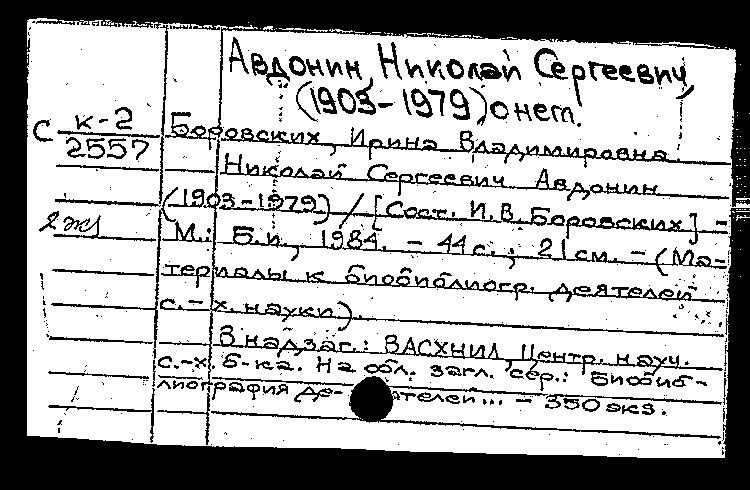 Авдонин, Николай Сергеевич,
(1903-1979), о нем.
С к-2
2557
Боровских, Ирина Владимировна
Николай Сергеевич Авдонин
(1903-1979) / [Сост. И.В. Боровских] -
2 эк
М.: Б.и., 1984. - 44 с.; 21 см. - (Ма-
териалы к биобиблиогр. деятелей
с.-х. науки).
В надзаг.: ВАСХНИЛ, Центр. науч.
с.-х. б-ка. На обл. загл. сер.: Биобиб-
лиография де-ятелей... - 350 экз.